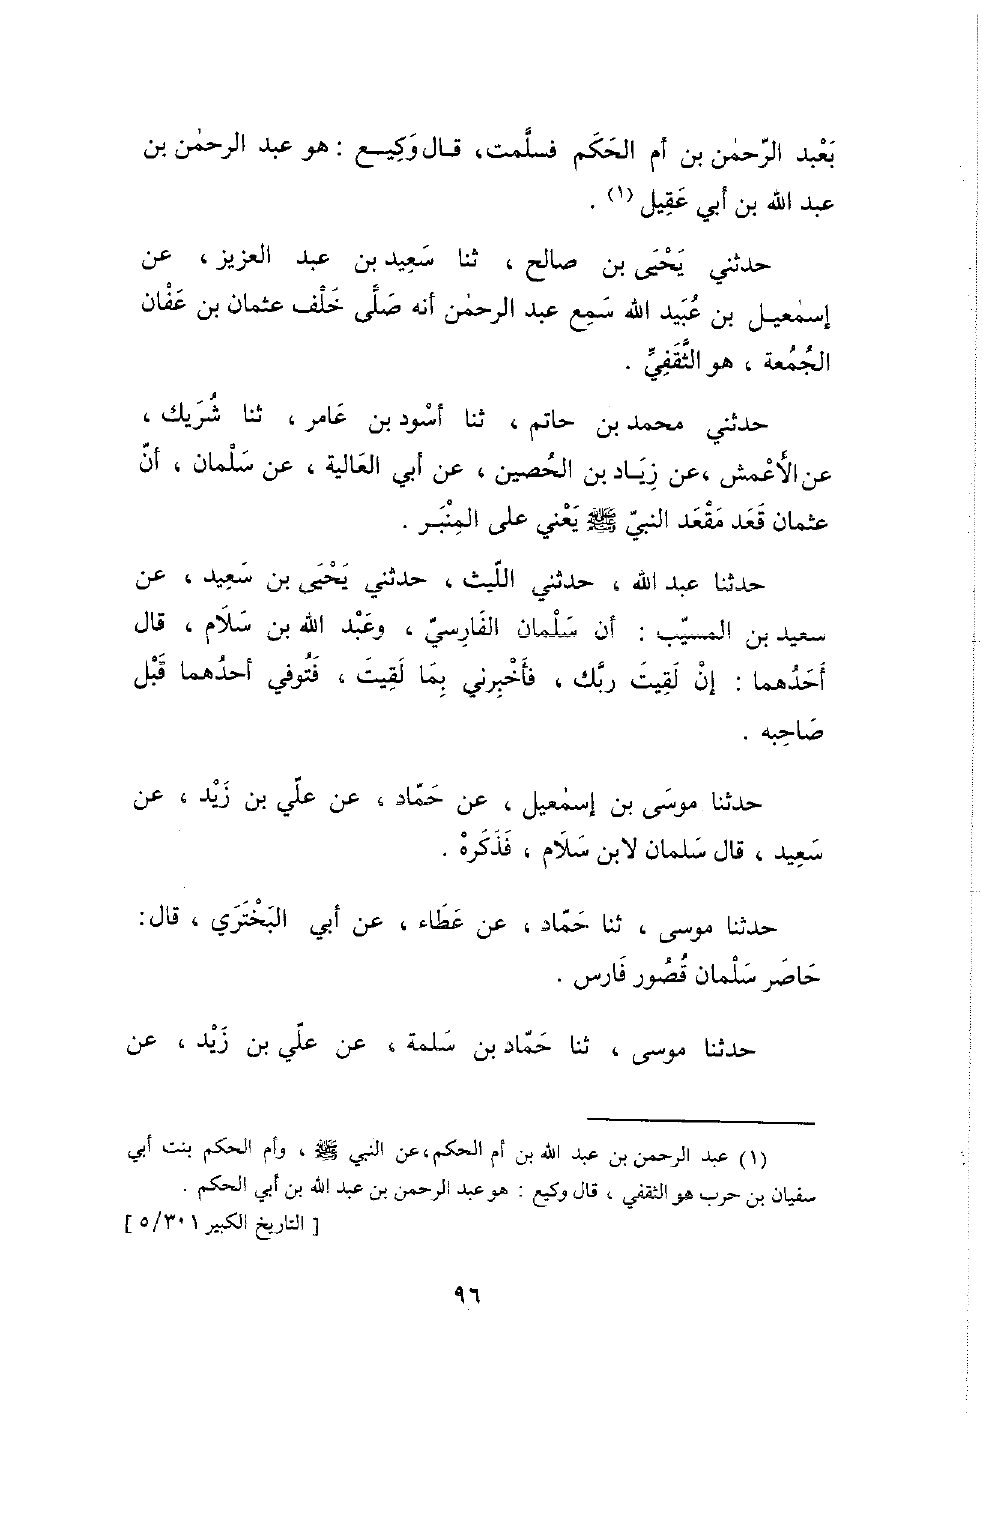 بَعْبد الرّحمٰن بن أم الحَكَم فسلَّمت، قـال وَكِيـع : هو عبد الرحمٰن بن
عبد الله بن أبي عَقِيل (١) .
حدثني يَحْيَى بن صالح ، ثنا سَعِيد بن عبد العزيز ، عن
إسمٰعيـل بن عُبَيد الله سَمِع عبد الرحمٰن أنه صَلَّى خَلْف عثمان بن عَفّان
الجُمُعة ، هو الثَّقَفِيّ .
حدثني محمد بن حاتم ، ثنا أسْود بن عَامر ، ثنا شُرَيك ،
عن الأَعْمش ،عن زِيَـاد بن الحُصين ، عن أبي العَالية ، عن سَلْمان ، أنّ
عثمان قَعَد مَقْعَد النبيّ ﷺ يَعْني على المِنْبَـر .
حدثنا عبد الله ، حدثني اللّيث ، حدثني يَحْيَى بن سَعِيد ، عن
سعيد بن المسيّب : أن سَلْمان الفَارِسيّ ، وعَبْد الله بن سَلَام ، قال
أَحَدُهما : إنْ لَقِيتَ ربَّك ، فأَخْبِرني بِمَا لَقِيتَ ، فَتُوفي أحدُهما قَبْل
صَاحِبه .
حدثنا موسَى بن إسمٰعيل ، عن حَمّاد ، عن علّي بن زَيْد ، عن
سَعِيد ، قال سَلمان لابن سَلَام ، فَذَكَرهْ .
حدثنا موسى ، ثنا حَمّاد ، عن عَطَاء ، عن أبي البَخْتَرَي ، قال:
حَاصَر سَلْمان قُصُور فَارس .
حدثنا موسى ، ثنا حَمّاد بن سَلمة ، عن علّي بن زَيْد ، عن
(١) عبد الرحمن بن عبد الله بن أم الحكم،عن النبي ﷺ ، وأم الحكم بنت أبي
سفيان بن حرب هو الثقفي ، قال وكيع : هو عبد الرحمن بن عبد الله بن أبي الحكم .
[ التاريخ الكبير ٥/٣٠١ ]
٩٦